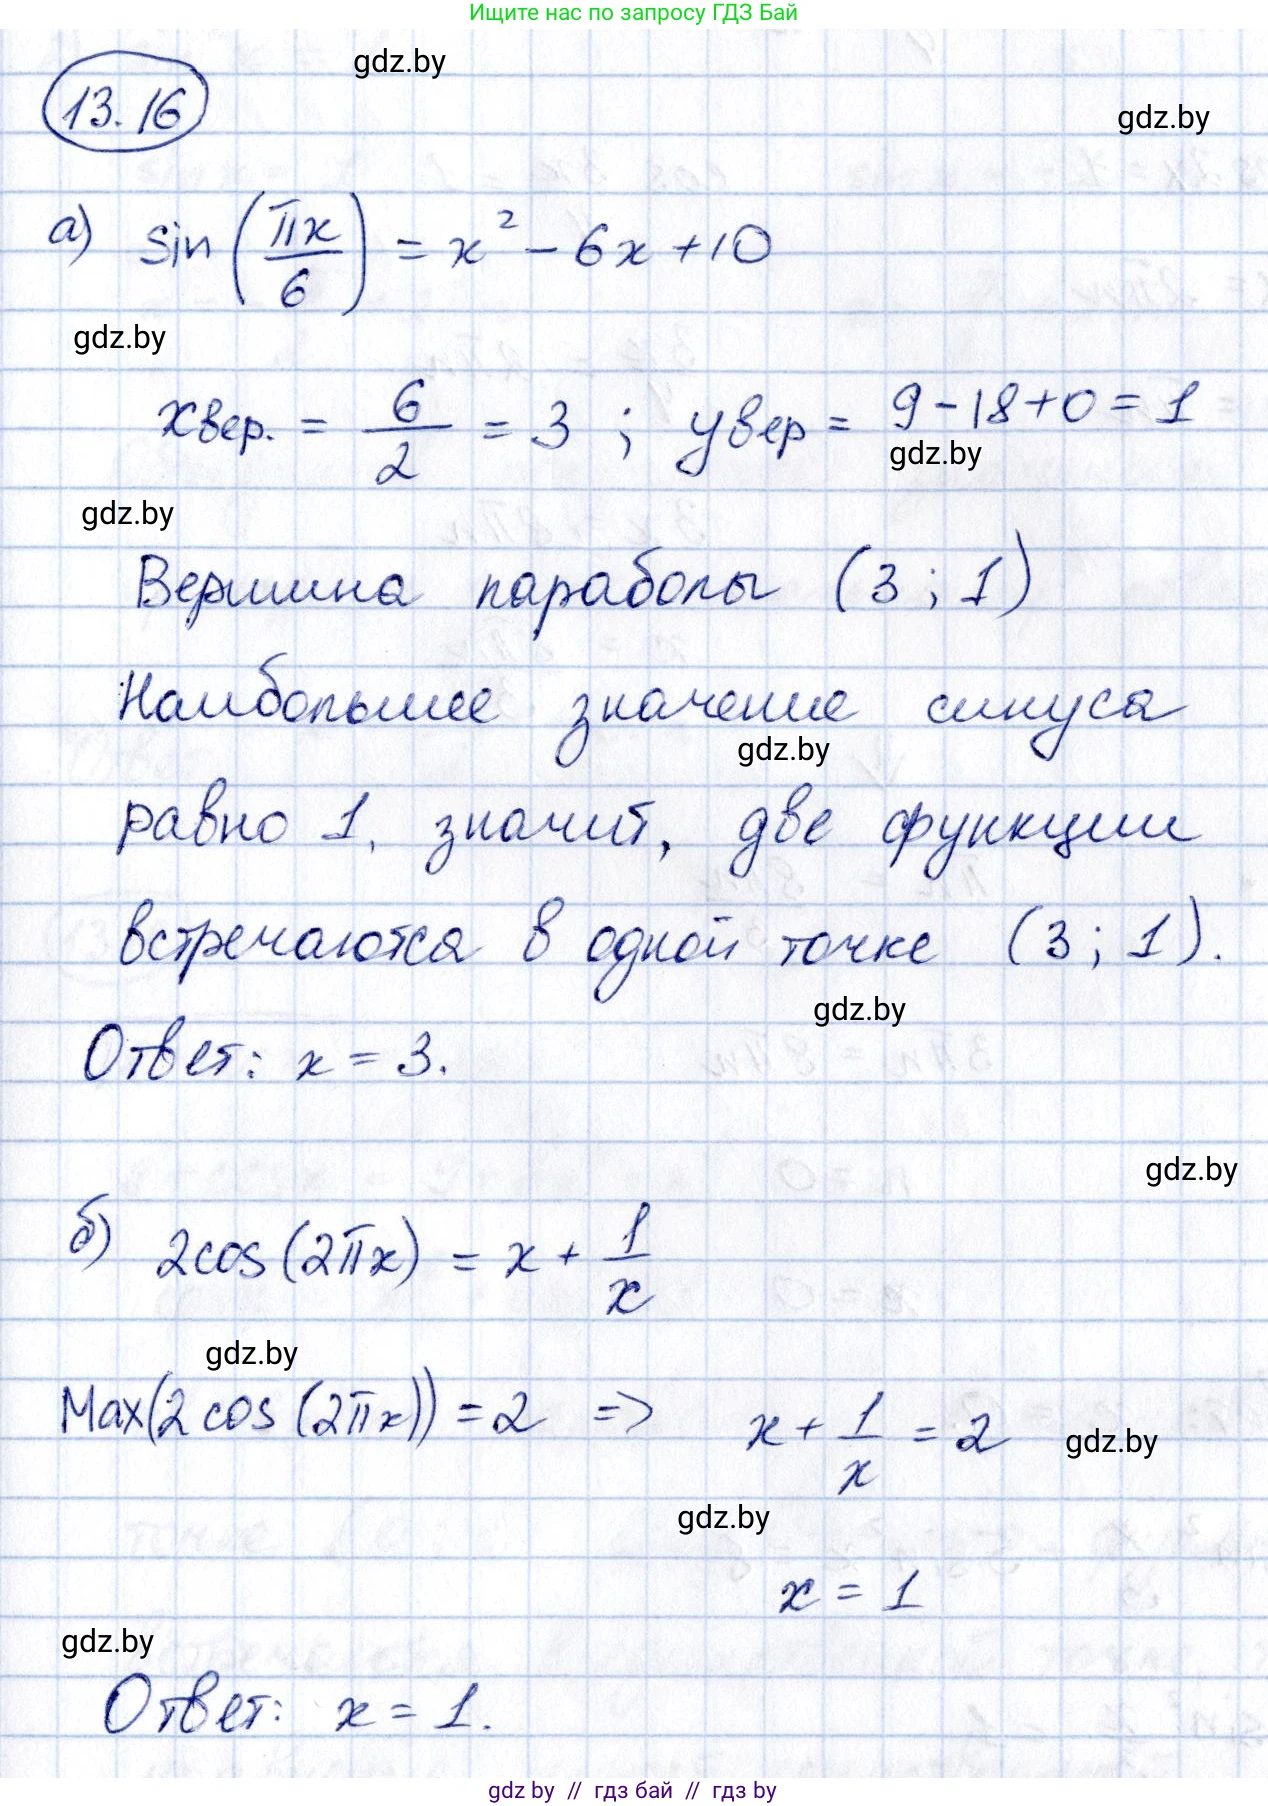 Ищите нас по запросу ГДЗ Бай
gdz.by
13.16
gdz.by
а) sin(πx/6) = x² - 6x + 10
gdz.by
xвер. = 6/2 = 3 ; yвер = 9 - 18 + 0 = 1
gdz.by
gdz.by
Вершина параболы (3 ; 1)
Наибольшее значение синуса
gdz.by
равно 1, значит, две функции
встречаются в одной точке (3 ; 1).
gdz.by
Ответ: x = 3.
gdz.by
б) 2cos(2πx) = x + 1/x
gdz.by
Max(2cos(2πx)) = 2 => x + 1/x = 2
gdz.by
gdz.by
x = 1
gdz.by
Ответ: x = 1.
gdz by // гдз бай // гдз by